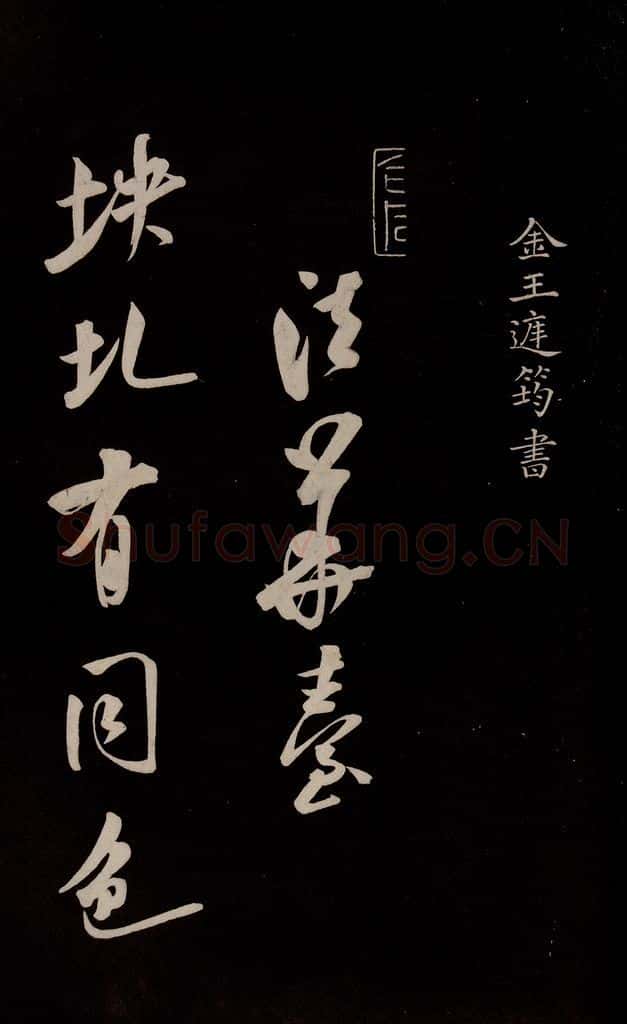 金王庭筠書
法華臺
坱圠有同色
Shufawang.CN